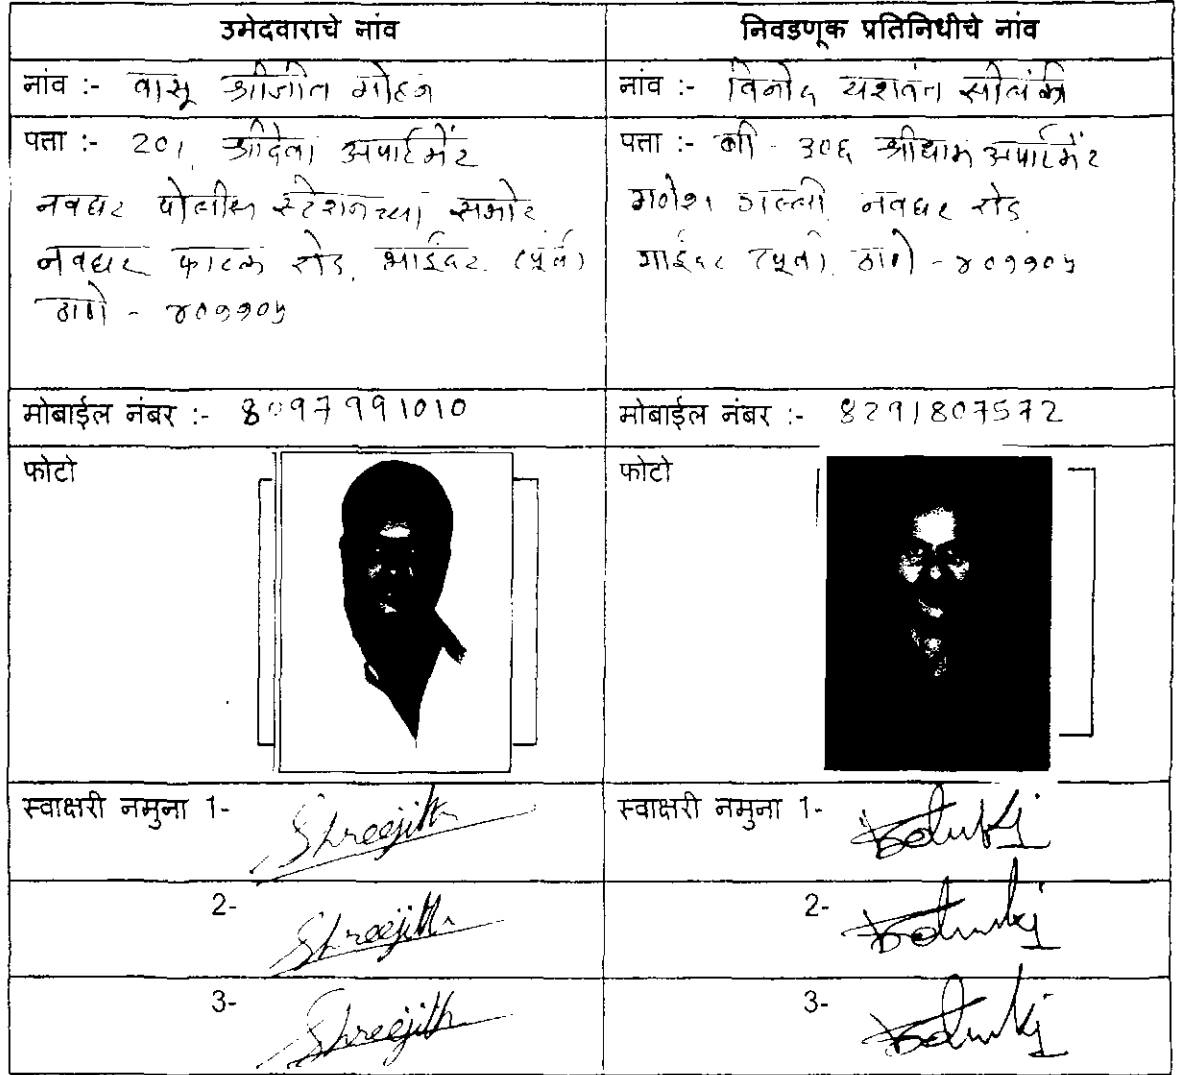 उमेदवाराचे नांव
निवडणूक प्रतिनिधीचे नांव
नांव :- वासू श्रीजीत मोहन
नांव :- विनोद यशवंत सोलंकी
पत्ता :- 201, श्रीदेवी अपार्टमेंट
नवघर पोलीस स्टेशनच्या समोर
नवघर फाटक रोड, भाईंदर (पूर्व)
ठाणे - ४०११०५
पत्ता :- बी - ३०६ श्रीधाम अपार्टमेंट
गणेश गल्ली नवघर रोड
भाईंदर (पूर्व). ठाणे - ४०११०५
मोबाईल नंबर :- 8097991010
मोबाईल नंबर :- 8291807572
फोटो
फोटो
स्वाक्षरी नमुना 1- Shreejith
स्वाक्षरी नमुना 1-
2- Shreejith
2-
3- Shreejith
3-